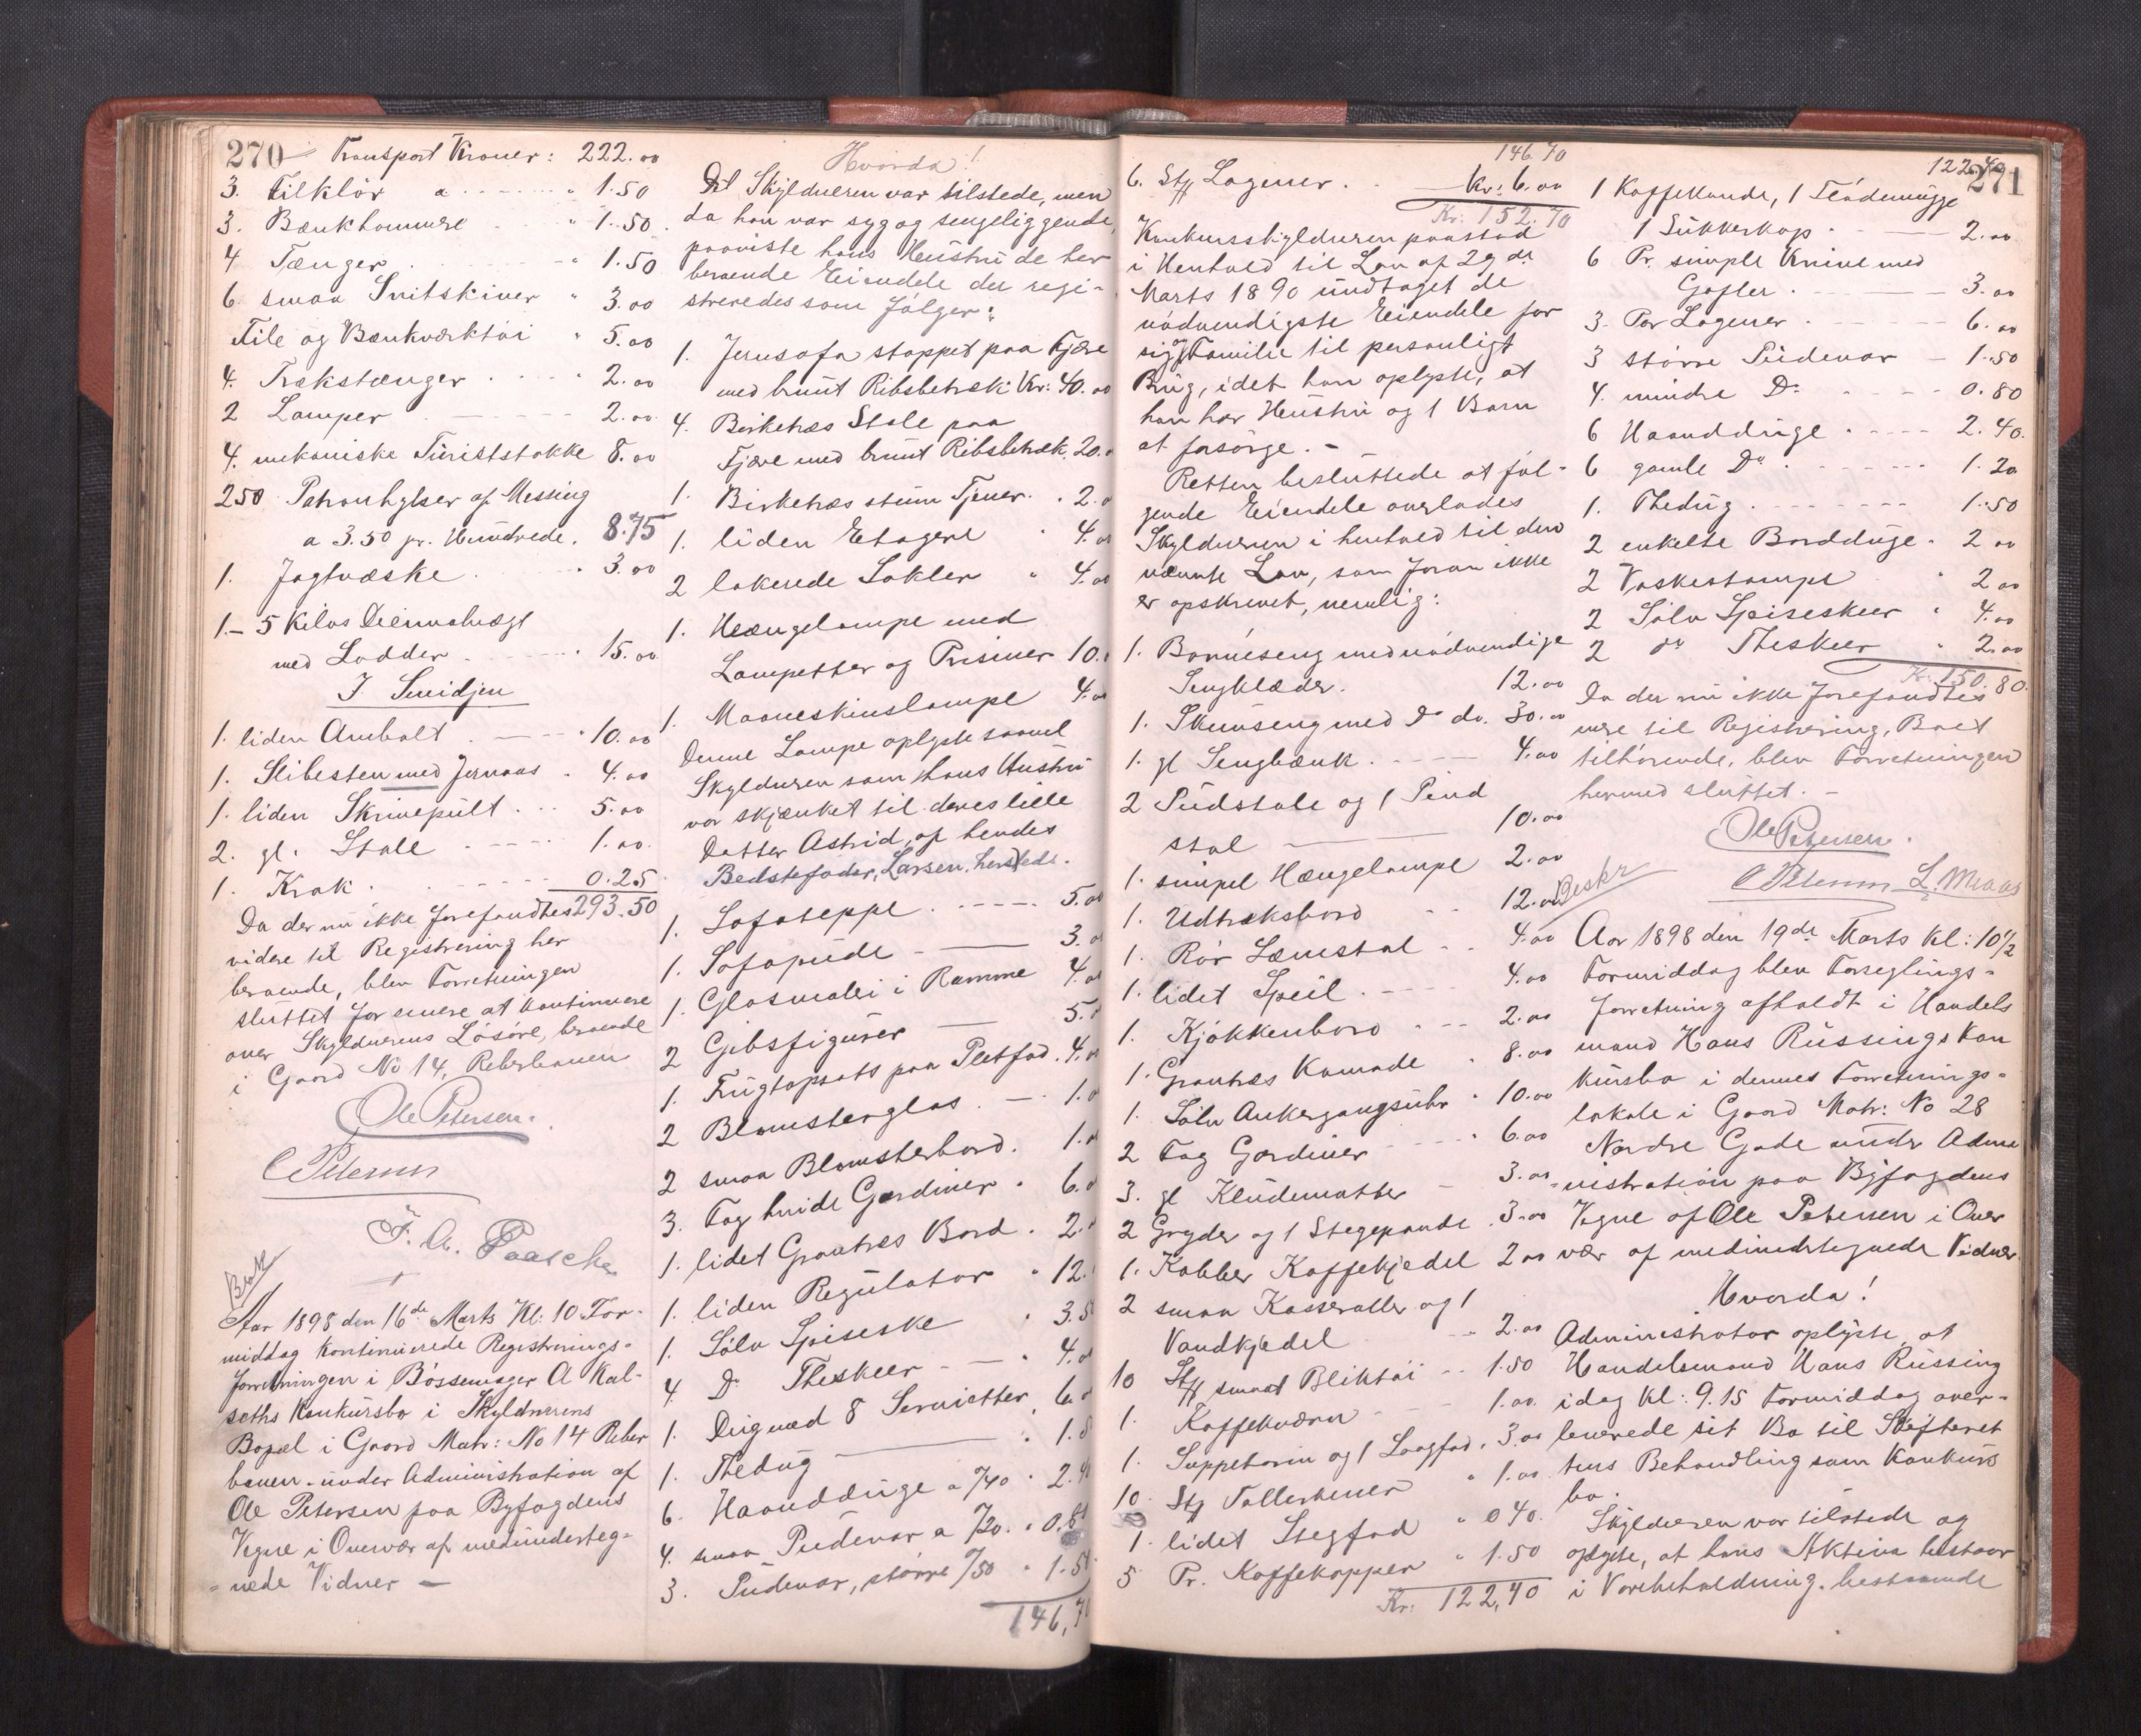 270 Transport Kroner: 222.00
3. Filklör a 1.50
3. Bænkhammere 1.50
4 Tænger 1.50
6 smaa Snitskiver 3.00
File og Bænkværktöi 5.00
4. Trækstænger 2.00
2 Lamper 2.00
4. mekaniske Turiststokke 8.00
250 Patronhylser af Messing
a 3.50 pr. Hundrede. 8.75
1. Jagtvæske 3.00
1 - 5 Kilos Decimalvægt
med Lodder 15.00
I Smidjen
1. liden Ambolt 10.00
1. Slibesten med Jernaas 4.00
1. liden Skrivepult 5.00
2. gl. Stole 1.00
1. Krak 0.25
293.50
Da der nu ikke forefandtes
videre til Registrering her
beroende, blev Forretningen
sluttet for senere at kontinuere
over Skyldnerens Lösöre, beroende
i Gaard No 14, Reberbanen
Ole Petersen.
C Petersen
F. A. Paasche
Besk
Aar 1898 den 16de Marts Kl: 10 For-
middag kontinuerede Registrerings-
forretningen i Bössemager A Kal-
sæths Konkursbo i Skyldnerens
Bopæl i Gaard Matr: No 14 Reber
banen under Administration af
Ole Petersen paa Byfogdens
Vegne i Overvær af medunderteg-
nede Vidner —
Hvorda!
Skyldneren var tilstede, men
da han var syg og sengeliggende,
paaviste hans Hustru de her
beroende Eiendele der regi-
streredes som fölger:
1. Jernsofa stoppet paa Fjære
med brunt Ribsbetræk Kr: 40.00
4. Birketræs Stole paa
Fjære med brunt Ribsbetræk. 20.
1. Birketræs stum Tjener 2.
1. liden Etagere 4.
2 lakerede Sokler 4.00
1. Hængelampe med
Lampetter og Prismer 10.
1. Maaneskinslampe 4.
Denne Lampe oplyste saavel
Skyldneren som hans Hustru
var skjænket til deres lille
Datter Astrid, af hendes
Bedstefader, Larsen, hersteds.
1. Sofateppe 5.00
1. Sofapude 3.
1. Glasmaleri i Ramme 4.
2 Gibsfigurer 5.
1. Frugtopsats paa Pletfod 4.
2 Blomsterglas 1.
2 smaa Blomsterbord 1.
3. Fag hvide Gardiner 6.
1. lidet Grantræs Bord 2.
1. liden Regulator 12.
1. Sölv Spiseske 3.5
4 Do Theskeer 4.
1. Dug med 8 Servietter 6.
1. Thedug 1.5
6. Haandduge a /40 2.40
4. smaa Pudevar a /20. 0.8
3. Pudevar, större /50 1.5
146,7
146.70
6. Stk Lagener. Kr: 6.00
Kr: 152.70
Konkursskyldneren paastod
i Henhold til Lov af 29de
Marts 1890 undtaget de
nödvendigste Eiendele for
sig og Familie til personligt
Brug, idet han oplyste, at
han har Hustru og 1 Barn
at forsörge. -
Retten besluttede at föl-
gende Eiendele overlades
Skyldneren i henhold til den
nævnte Lov, som foran ikke
er opskrevet, nemlig:
1. Barneseng med nödvendige
Sengklæder. 12.00
1. Skuvseng med Do do. 30.00
1. gl Sengbænk 4.00
2 Pudstole og 1 Pind
stol 10.00
1. simpel Hængelampe 2.00
1. Udtræksbord 12.00
1. Rör Lænestol 4.00
1. lidet Speil 4.00
1. Kjökkenbord 2.00
1. Grantræs Komode 8.00
1. Sölv Ankergangsuhr 10.00
2 Fag Gardiner 6.00
3. gl Kludematter 3.00
2 Gryder og 1 Stegepande 3.00
1. Kobber Kaffekjedel 2.00
2 smaa Kasseroller og 1
Vandkjedel 2.00
10 Stk smaat Bliktöi 1.50
1. Kaffekværn 1.00
1. Suppeterin og 1 Laagfad 3.00
10 Stk Tallerkener 1.00
1. lidet Stegfad 0.40
5 Pr. Kaffekopper 1.50
Kr: 122,40
122.40
271
1 Kaffekande, 1 Flödemugge
1 Sukkerkop 2.00
6 Pr. simple Knive med
Gafler 3.00
3. Par Lagener 6.00
3 större Pudevar 1.50
4. mindre Do 0.80
6 Haandduge 2.40
6 gamle Do 1.20
1. Thedug 1.50
2 enkelte Bordduge 2.00
2 Vaskestampe 2.00
2 Sölv Spiseskeer 4.00
2 do Theskeer 2.00
Kr: 150.80
Da der nu ikke forefandtes
mere til Registrering, Boet
tilhörende, blev Forretningen
hermed sluttet. -
Ole Petersen.
C Petersen L. Maas
Beskr
Aar 1898 den 19de Marts Kl: 10½
Formiddag blev Forseglings-
forretning afholdt i Handels
mand Hans Russings Kon
kursbo i dennes Forretnings-
lokale i Gaard Matr: No 28
Nordre Gade under Admi
nistration paa Byfogdens
Vegne af Ole Petersen i Over
vær af medundertegnede Vidner.
Hvorda!
Administrator oplyste, at
Handelsmand Hans Russing
idag Kl: 9.15 Formiddag over-
leverede sit Bo til Skifteret
tens Behandling som Konkurs
bo.
Skyldneren var tilstede og
oplyste, at hans Aktiva bestaar
i Varebeholdning, bestaaende